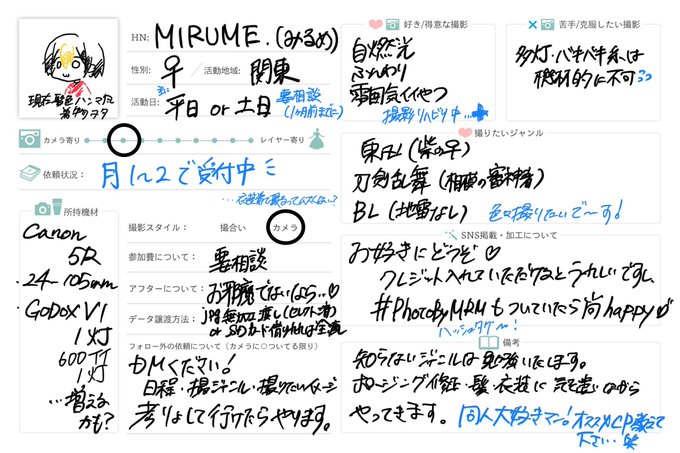 現在髪色ハンマ風
着物ヲタ
HN: MIRUME.(みるめ)
性別: ♀ / 活動地域: 関東
活動日: 主に 平日 or 土日 要相談
(1ヶ月前までに)
カメラ寄り レイヤー寄り
依頼状況: 月1〜2で受付中
所持機材
Canon
5R
24-105mm
GODOX V1
1灯
600灯
1灯
…増える
かも?
…衣装着て撮るってなんだい?
撮影スタイル: 撮合い カメラ
参加費について: 要相談
アフターについて: お邪魔でないなら…♡
データ譲渡方法: jpg無加工渡し(セレクト済)
or SDカード借りれれば全渡
フォロー外の依頼について(カメラに○ついてる限り)
DMください!
日程・撮ジャンル・撮りたいイメージ
考りょして行けたらやります。
好き/得意な撮影
自然光
ふんわり
雰囲気イイやつ
撮影リハビリ中…
苦手/克服したい撮影
多灯・バキバキ系は
機材的に不可
撮りたいジャンル
東卍(柴の字)
刀剣乱舞(相模の審神者)
BL(地雷なし) 色々撮りたいで〜す!
SNS掲載・加工について
お好きにどうぞ♡
クレジット入れていただけるとうれしいですし、
#PhotoByMRMもついていたら尚happy♡
ハッシュタグ〜!
備考
知らないジャンルは勉強いたします。
ポージング修正・髪・衣装に気を遣いながら
やってきます。同人大好きマン!オススメCP教えて
下さい…笑